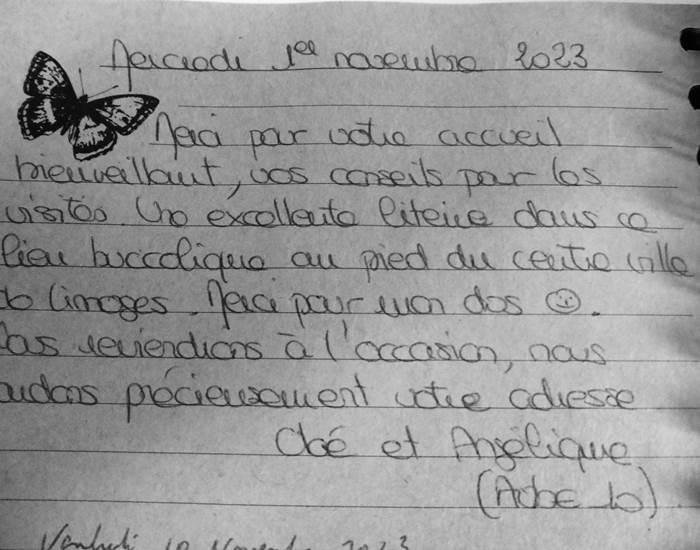 Mercredi 1er novembre 2023
Merci pour votre accueil
bienveillant, vos conseils pour les
visites. Une excellente literie dans ce
lieu buccolique au pied du centre ville
de Limoges. Merci pour mon dos ☺.
Nous reviendrons à l'occasion, nous
gardons précieusement votre adresse
Cloé et Angélique
Vendredi 10 Novembre 2023